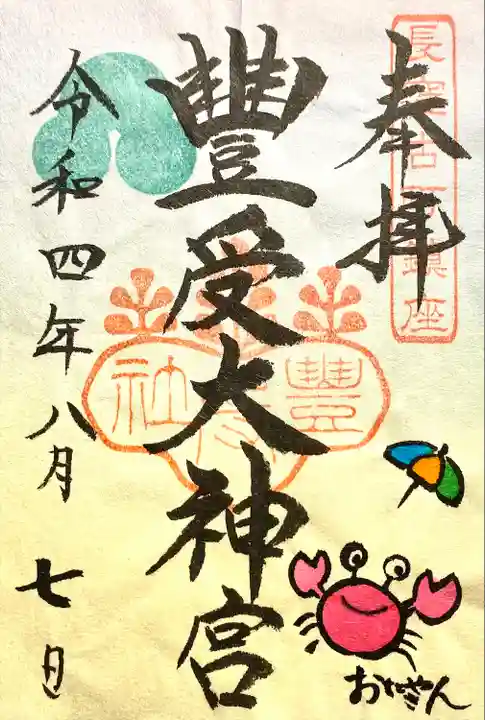 長窪古町鎮座
奉拝
豐受大神宮
令和四年八月七日
おたやさん